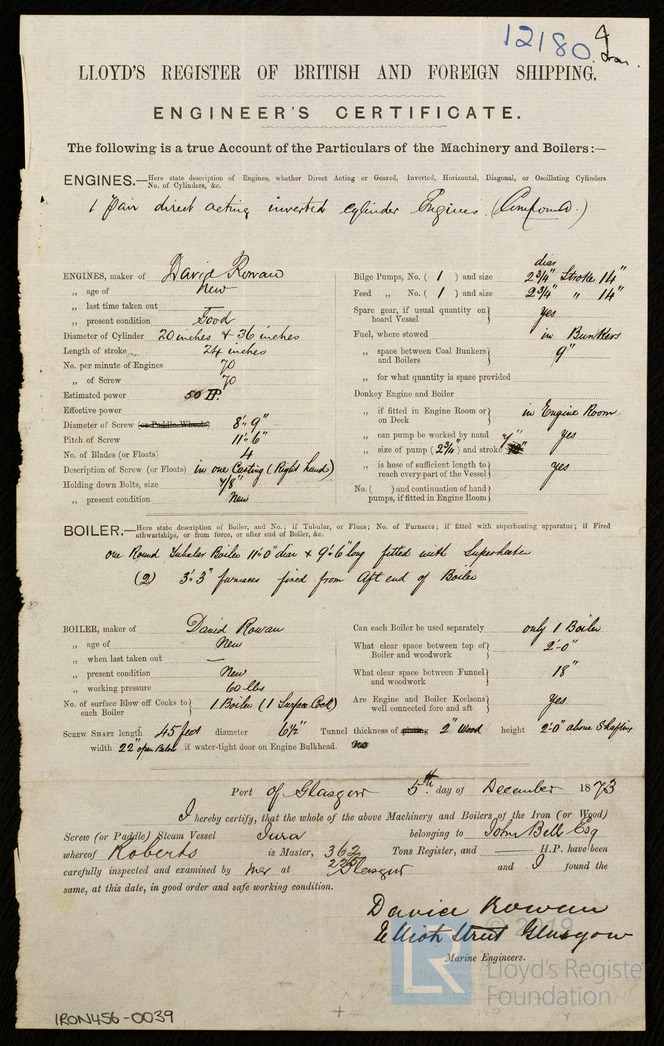 12180 Iron.
LLOYD'S REGISTER OF BRITISH AND FOREIGN SHIPPING.
ENGINEER'S CERTIFICATE.
The following is a true Account of the Particulars of the Machinery and Boilers:—
ENGINES.—Here state description of Engines, whether Direct Acting or Geared, Inverted, Horizontal, Diagonal, or Oscillating Cylinders
No. of Cylinders, &c.
1 Pair direct acting inverted cylinder Engines (Compound.)
ENGINES, maker of David Rowan
„ age of New
„ last time taken out —
„ present condition Good
Diameter of Cylinder 20 inches & 36 inches
Length of stroke 24 inches
No. per minute of Engines 70
„ of Screw 70
Estimated power 50 HP.
Effective power
Diameter of Screw (or Paddle Wheels) 8'. 9"
Pitch of Screw 11'. 6"
No. of Blades (or Floats) 4
Description of Screw (or Floats) in one Casting (Right hand)
Holding down Bolts, size 7/8"
„ present condition New
Bilge Pumps, No. ( 1 ) and size dia 2 3/4" Stroke 14"
Feed „ No. ( 1 ) and size 2 3/4" „ 14"
Spare gear, if usual quantity on board Vessel } yes
Fuel, where stowed in Bunkers
„ space between Coal Bunkers and Boilers } 9"
„ for what quantity is space provided
Donkey Engine and Boiler
„ if fitted in Engine Room or on Deck } in Engine Room
„ can pump be worked by hand yes
„ size of pump ( 2 3/4" ) and stroke 7"
„ is hose of sufficient length to reach every-part of the Vessel } yes
No. ( ) and continuation of hand pumps, if fitted in Engine Room }
BOILER.—Here state description of Boiler, and No.; if Tubular, or Flues; No. of Furnaces; if fitted with superheating apparatus; if Fired
athwartships, or from force, or after end of Boiler, &c.
one Round Tubular Boiler 11'. 0" dia & 9'. 6" long fitted with Superheater
(2) 3'. 3" furnaces fired from Aft end of Boiler
BOILER, maker of David Rowan
„ age of New
„ when last taken out —
„ present condition New
„ working pressure 60 lbs
No. of surface Blow off Cocks to each Boiler } 1 Boiler (1 Surface Cock)
Can each Boiler be used separately only 1 Boiler
What clear space between top of Boiler and woodwork } 2'-0"
What clear space between Funnel and woodwork } 18"
Are Engine and Boiler Keelsons well connected fore and aft } Yes
SCREW SHAFT length 45 feet diameter 6 1/2" Tunnel thickness of plating 2" Wood height 2'-0" above Shafting
width 22" open Below if water-tight door on Engine Bulkhead. no
Port of Glasgow 5th. day of December 1873
I hereby certify, that the whole of the above Machinery and Boilers of the Iron (or Wood)
Screw (or Paddle) Steam Vessel Jura belonging to John Bell Esq
whereof Roberts is Master, 362 Tons Register, and —— H.P. have been
carefully inspected and examined by me at Glasgow and I found the
same, at this date, in good order and safe working condition.
David Rowan
Elliot Street Glasgow
Marine Engineers.
LR
© 2019
Lloyd's Register
Foundation
IRON456-0039